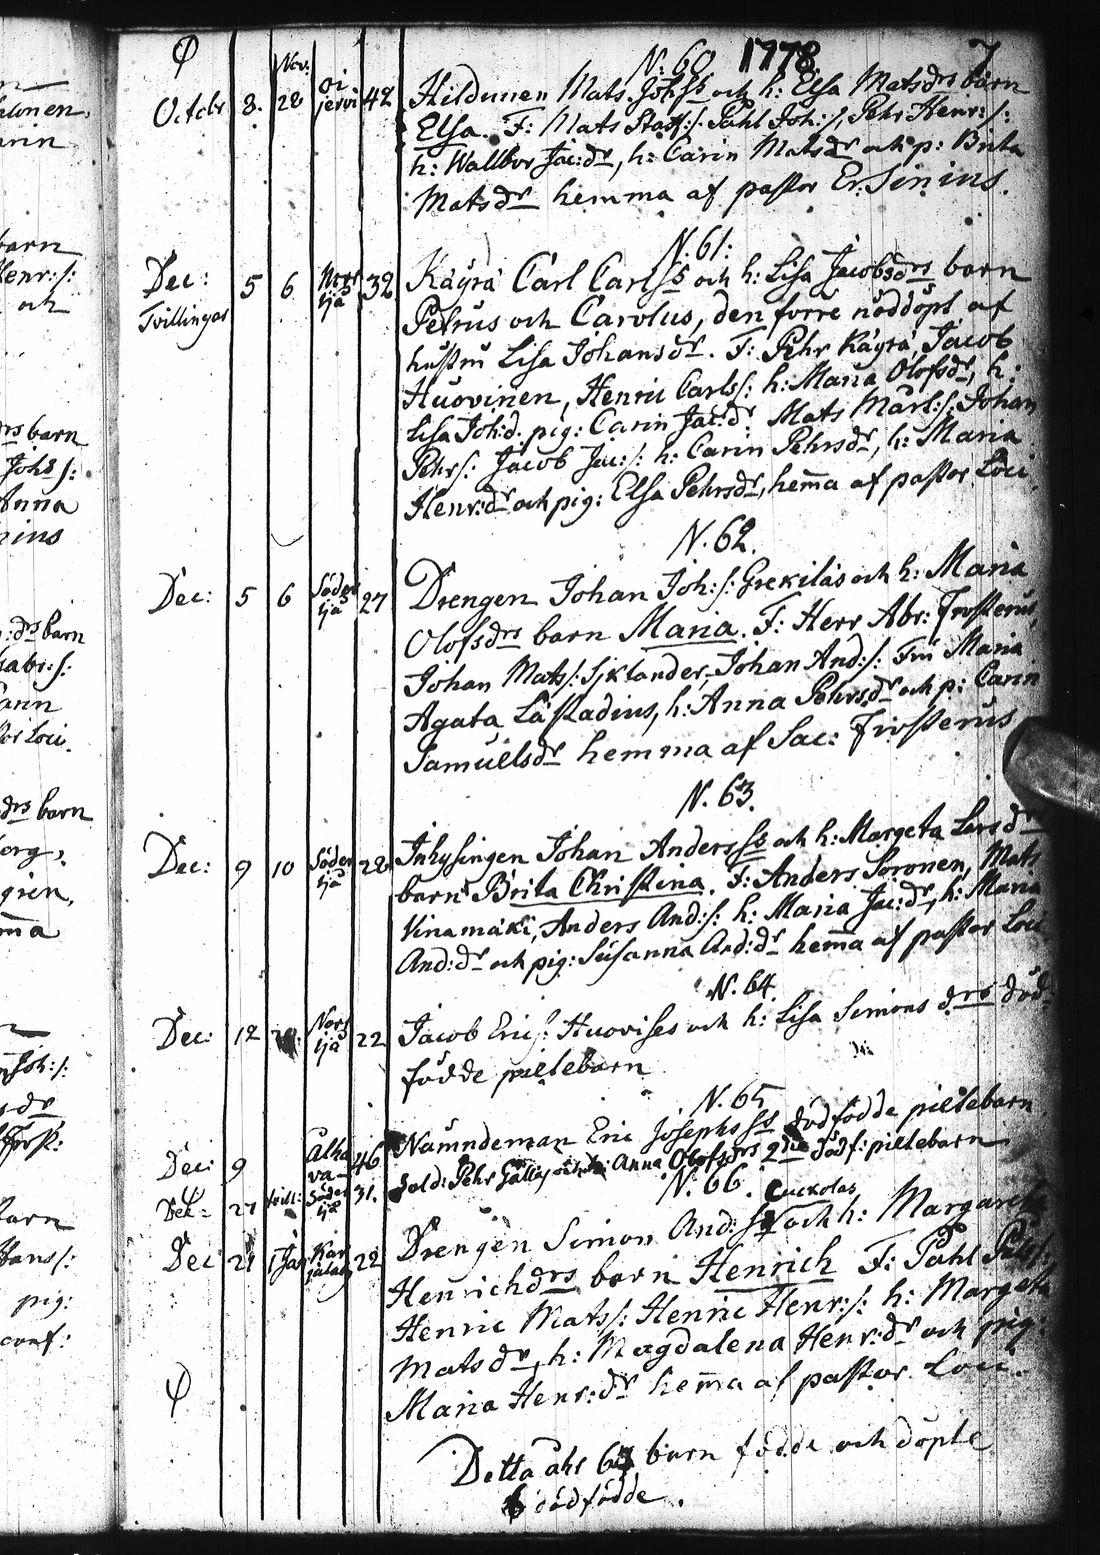 N. 60 1778 7
Nov:
Octobr 8. 28 Oijervi 42 Hildunen Mats Johss och h: Elsa Matsdrs barn
Elsa. F: Mats Staff:/: Pahl Joh:/, Pehr Henr:/:
h: Wallbor Jac:dr, h: Carin Matsdr och p: Brita
Matsdr hemma af pastor Er. Sinius.
N. 61:
Dec: 5 6 Norr sjä 32 Käyrä Carl Carlss och h: Lisa Jacobsdrs barn
Tvillingar Petrus och Carolus, den förre nöddöpt af
hustru Lisa Johansdr. F: Pehr Käyrä Jacob
Huovinen, Henric Carls/: h: Maria Olofsdr, h:
Lisa Joh:d. pig: Carin Jac:dr. Mats Mårt:/: Johan
Pehr/: Jacob Jac:/: h: Carin Pehrsdr, h: Maria
Henr:dr och pig: Elsa Pehrsdr, hem̄a af pastor Loci.
N. 62.
Dec: 5 6 Söder sjä 27 Drengen Johan Joh:/: Grekiläs och h: Maria
Olofsdrs barn Maria. F: Herr Abr: Frosterus,
Johan Mats/: Sjklander, Johan And:/: Fru Maria
Agata Læstadius, h: Anna Pehrsdr och p: Carin
Samuelsdr hemma af Sac: Frosterus
N. 63.
Dec: 9 10 Söder sjä 28 Inhysingen Johan Anderss och h: Margeta Larsdrs
barn Brita Christina. F: Anders Soronen, Mats
Vinamäki, Anders And:/: h: Maria Jac:dr, h: Maria
And:dr och pig: Susanna And:dr hem̄a af pastor Loci
N. 64.
Dec: 12 Norr sjä 22 Jacob Eric/: Huovises och h: Lisa Simons drs död
födde piltebarn
N. 65
Dec: 9 Alha va- 46 Nämndeman Eric Josephs ss dödfödde piltebarn
Dec: 27 tvill: Söder sjä 31. Sold: Pehr Gällis och h: Anna Olofsdrs 2ne dödf: piltebarn
N. 66. Cuckolas
Dec 21 1 Jan Karjalax 22 Drengen Simon And: ss och h: Margareta
Henrichdrs barn Henrich F: Pahl Påls/:
Henric Mats/: Henric Henr:/: h: Margeta
Matsdr, h: Magdalena Henr:dr och pig:
Maria Henr:dr hem̄a af pastor Loci.
Detta åhr 67 barn födde och döpte
6 dödfödde.